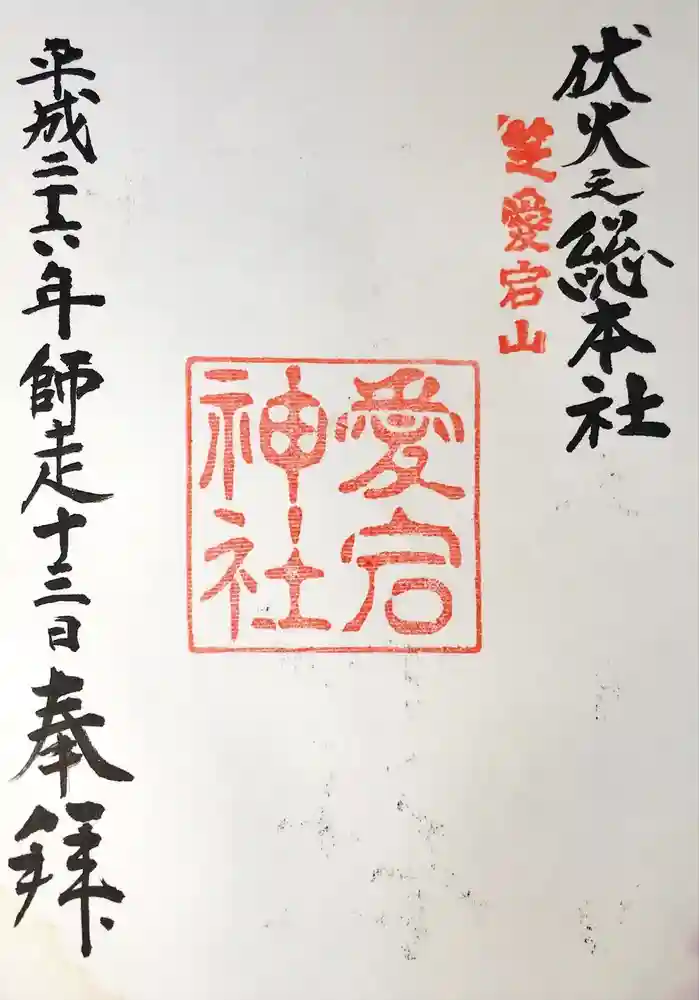 伏火之総本社
芝愛宕山
愛宕
神社
平成二十六年師走十三日奉拝